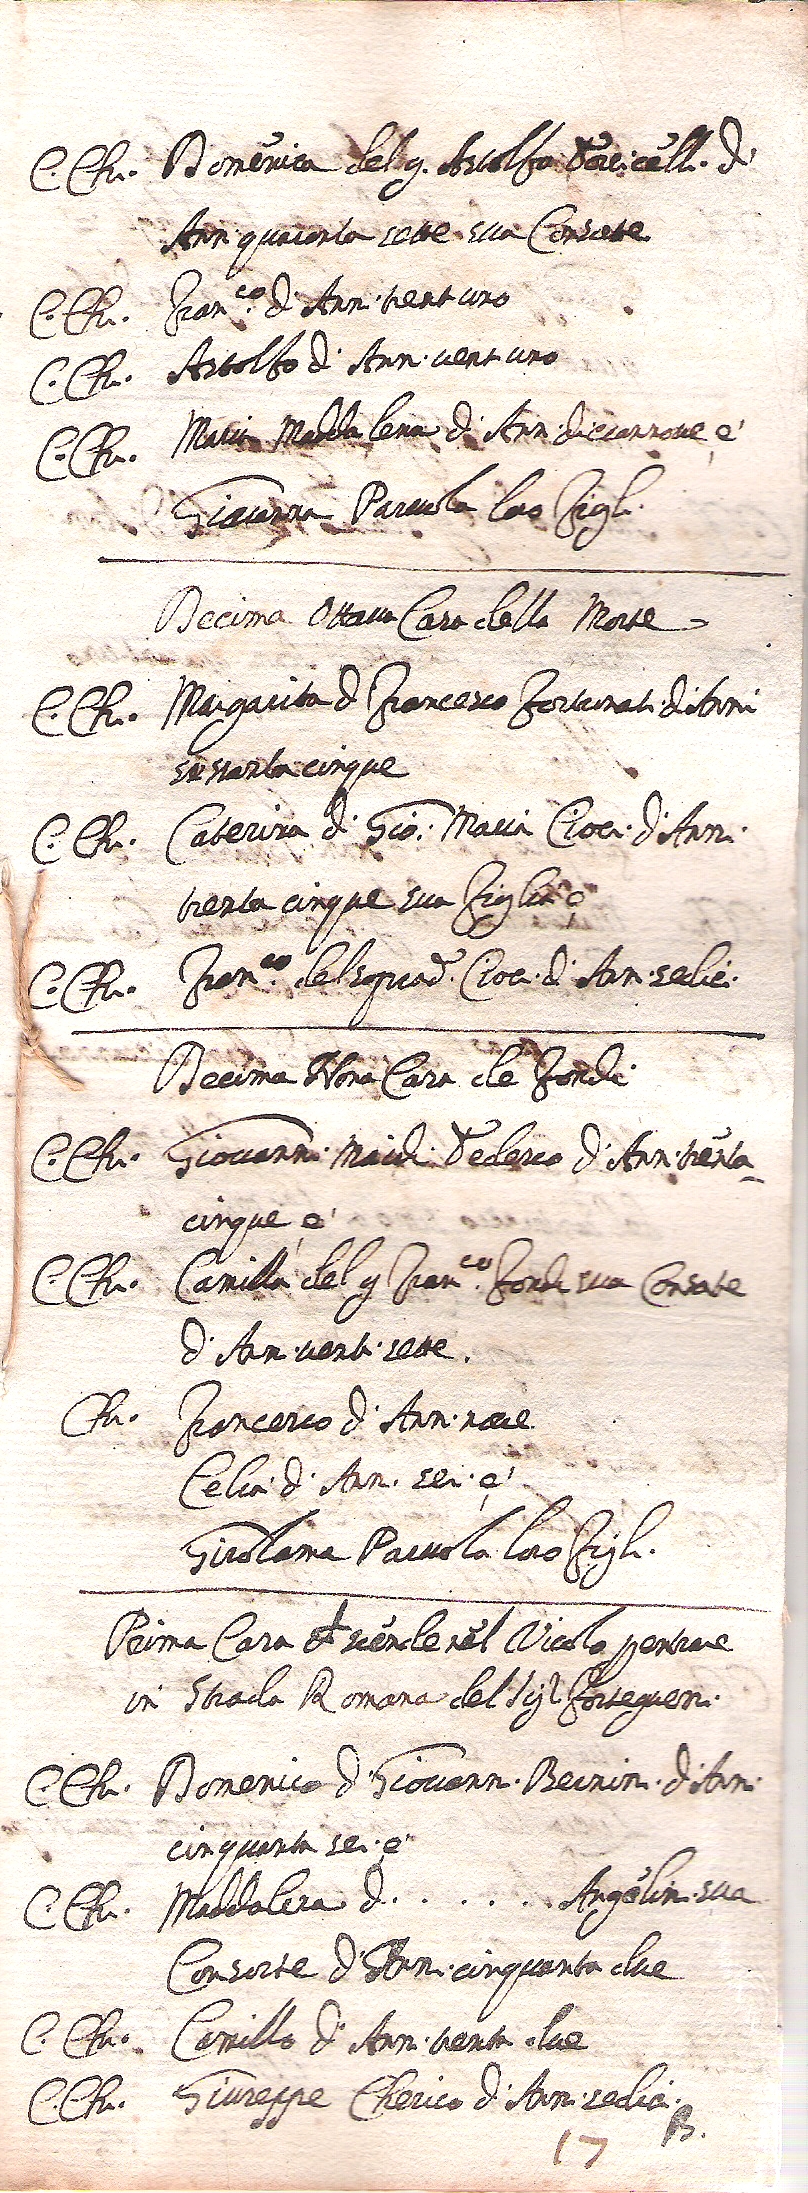 C. Ch. Domenica del q. Astolfo di
Ann. quaranta sette sua Consorte
C. Ch. Fran.co di Ann. trent uno
C. Ch. Astolfo di Ann. vent uno
C. Ch. Maria Madda lena di Ann. diciannove e
Giovanna Parvola loro Figli.
Decima Ottava Casa della Morte
C. Ch. Margarita d Francesco Fortunati di Anni
sessanta cinque
C. Ch. Caterina di Gio: Maria Cioci di Ann.
trenta cinque sua Figlia e
C. Ch. Fran.co del soprad. Cioci di Ann. sedici.
Decima Nona Casa de Fondi
C. Ch. Giovanni di Ann. trenta
cinque e
C. Ch. Camilla del q Fran.co Fondi sua Consorte
di Ann. venti sette.
Ch. Francesco di Ann. nove
Celia di Ann. sei e
Girolama Parvola loro Figli.
Prima Casa scende nel Vicolo per trave
in Strada Romana del Sig.r Forteguerri.
C. Ch. Domenico di Giovann. Bernin. di Ann.
cinquanta sei e
C. Ch. Maddalena d. . . . . . . Angelin. sua
Consorte di Ann. cinquanta due
C. Ch. Camillo di Ann. trenta due
C. Ch. Giuseppe Cherico di Ann. sedici.
17 B.